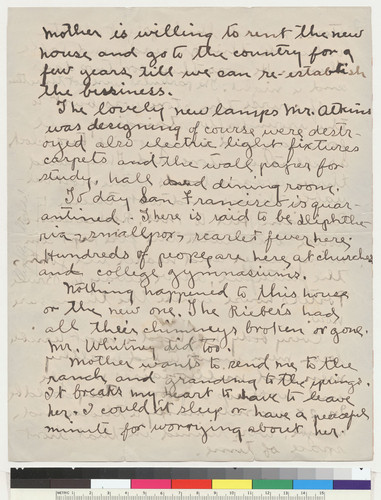 mother is willing to rent the new
house and go to the country for a
few years till we can re-establish
the business.
The lovely new lamps Mr. Atkins
was designing of course were destr-
oyed also electric light fixtures
carpets and the wall paper for
study, hall and dining room.
To day San Francisco is quar-
antined. There is said to be diphthe-
ria, smallpox, scarlet fever here.
Hundreds of people are here at churches
and college gymnasiums.
Nothing happened to this house
or the new one. The Rieber's had
all their chimneys broken or gone.
Mr. Whitney did too.
Mother wants to send me to the
ranch and grandma to the springs.
It breaks my heart to have to leave
her. I couldn't sleep or have a peaceful
minute for worrying about her.